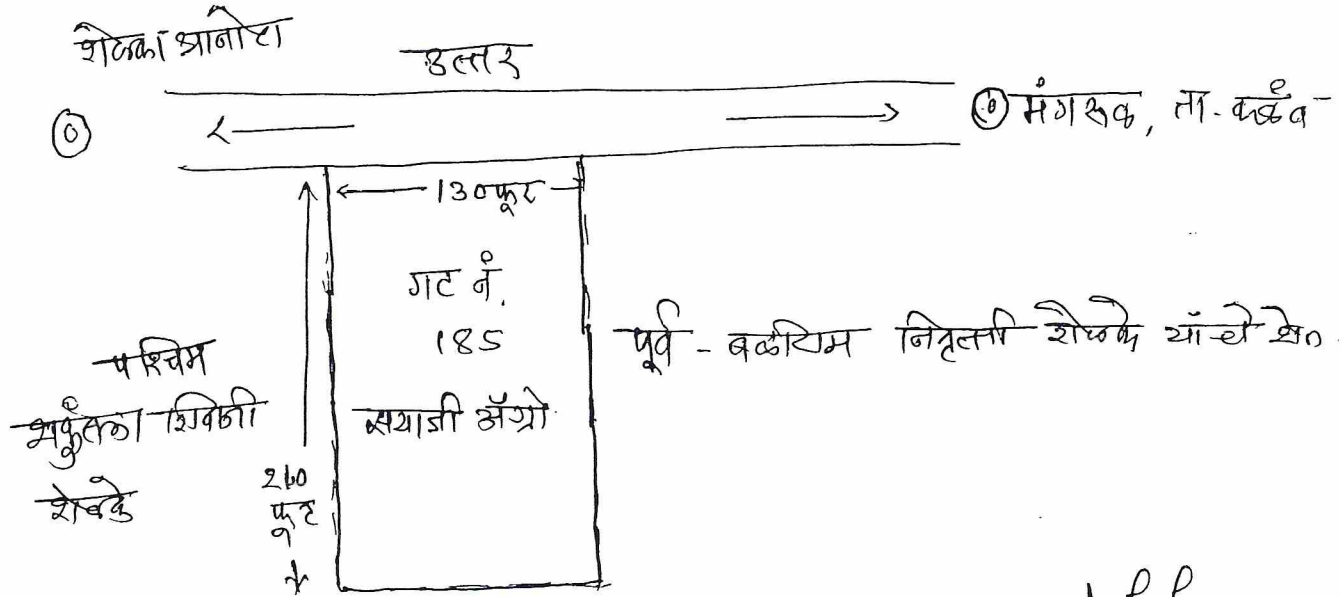 शेळका धानोरा
उत्तर
मंगरूळ, ता. कळंब
130 फूट
गट नं.
185
सयाजी ॲग्रो
पूर्व - बळीराम निवृत्ती शेळके यांचे शेत
पश्चिम
शकुंतला शिवाजी
शेळके
260
फूट